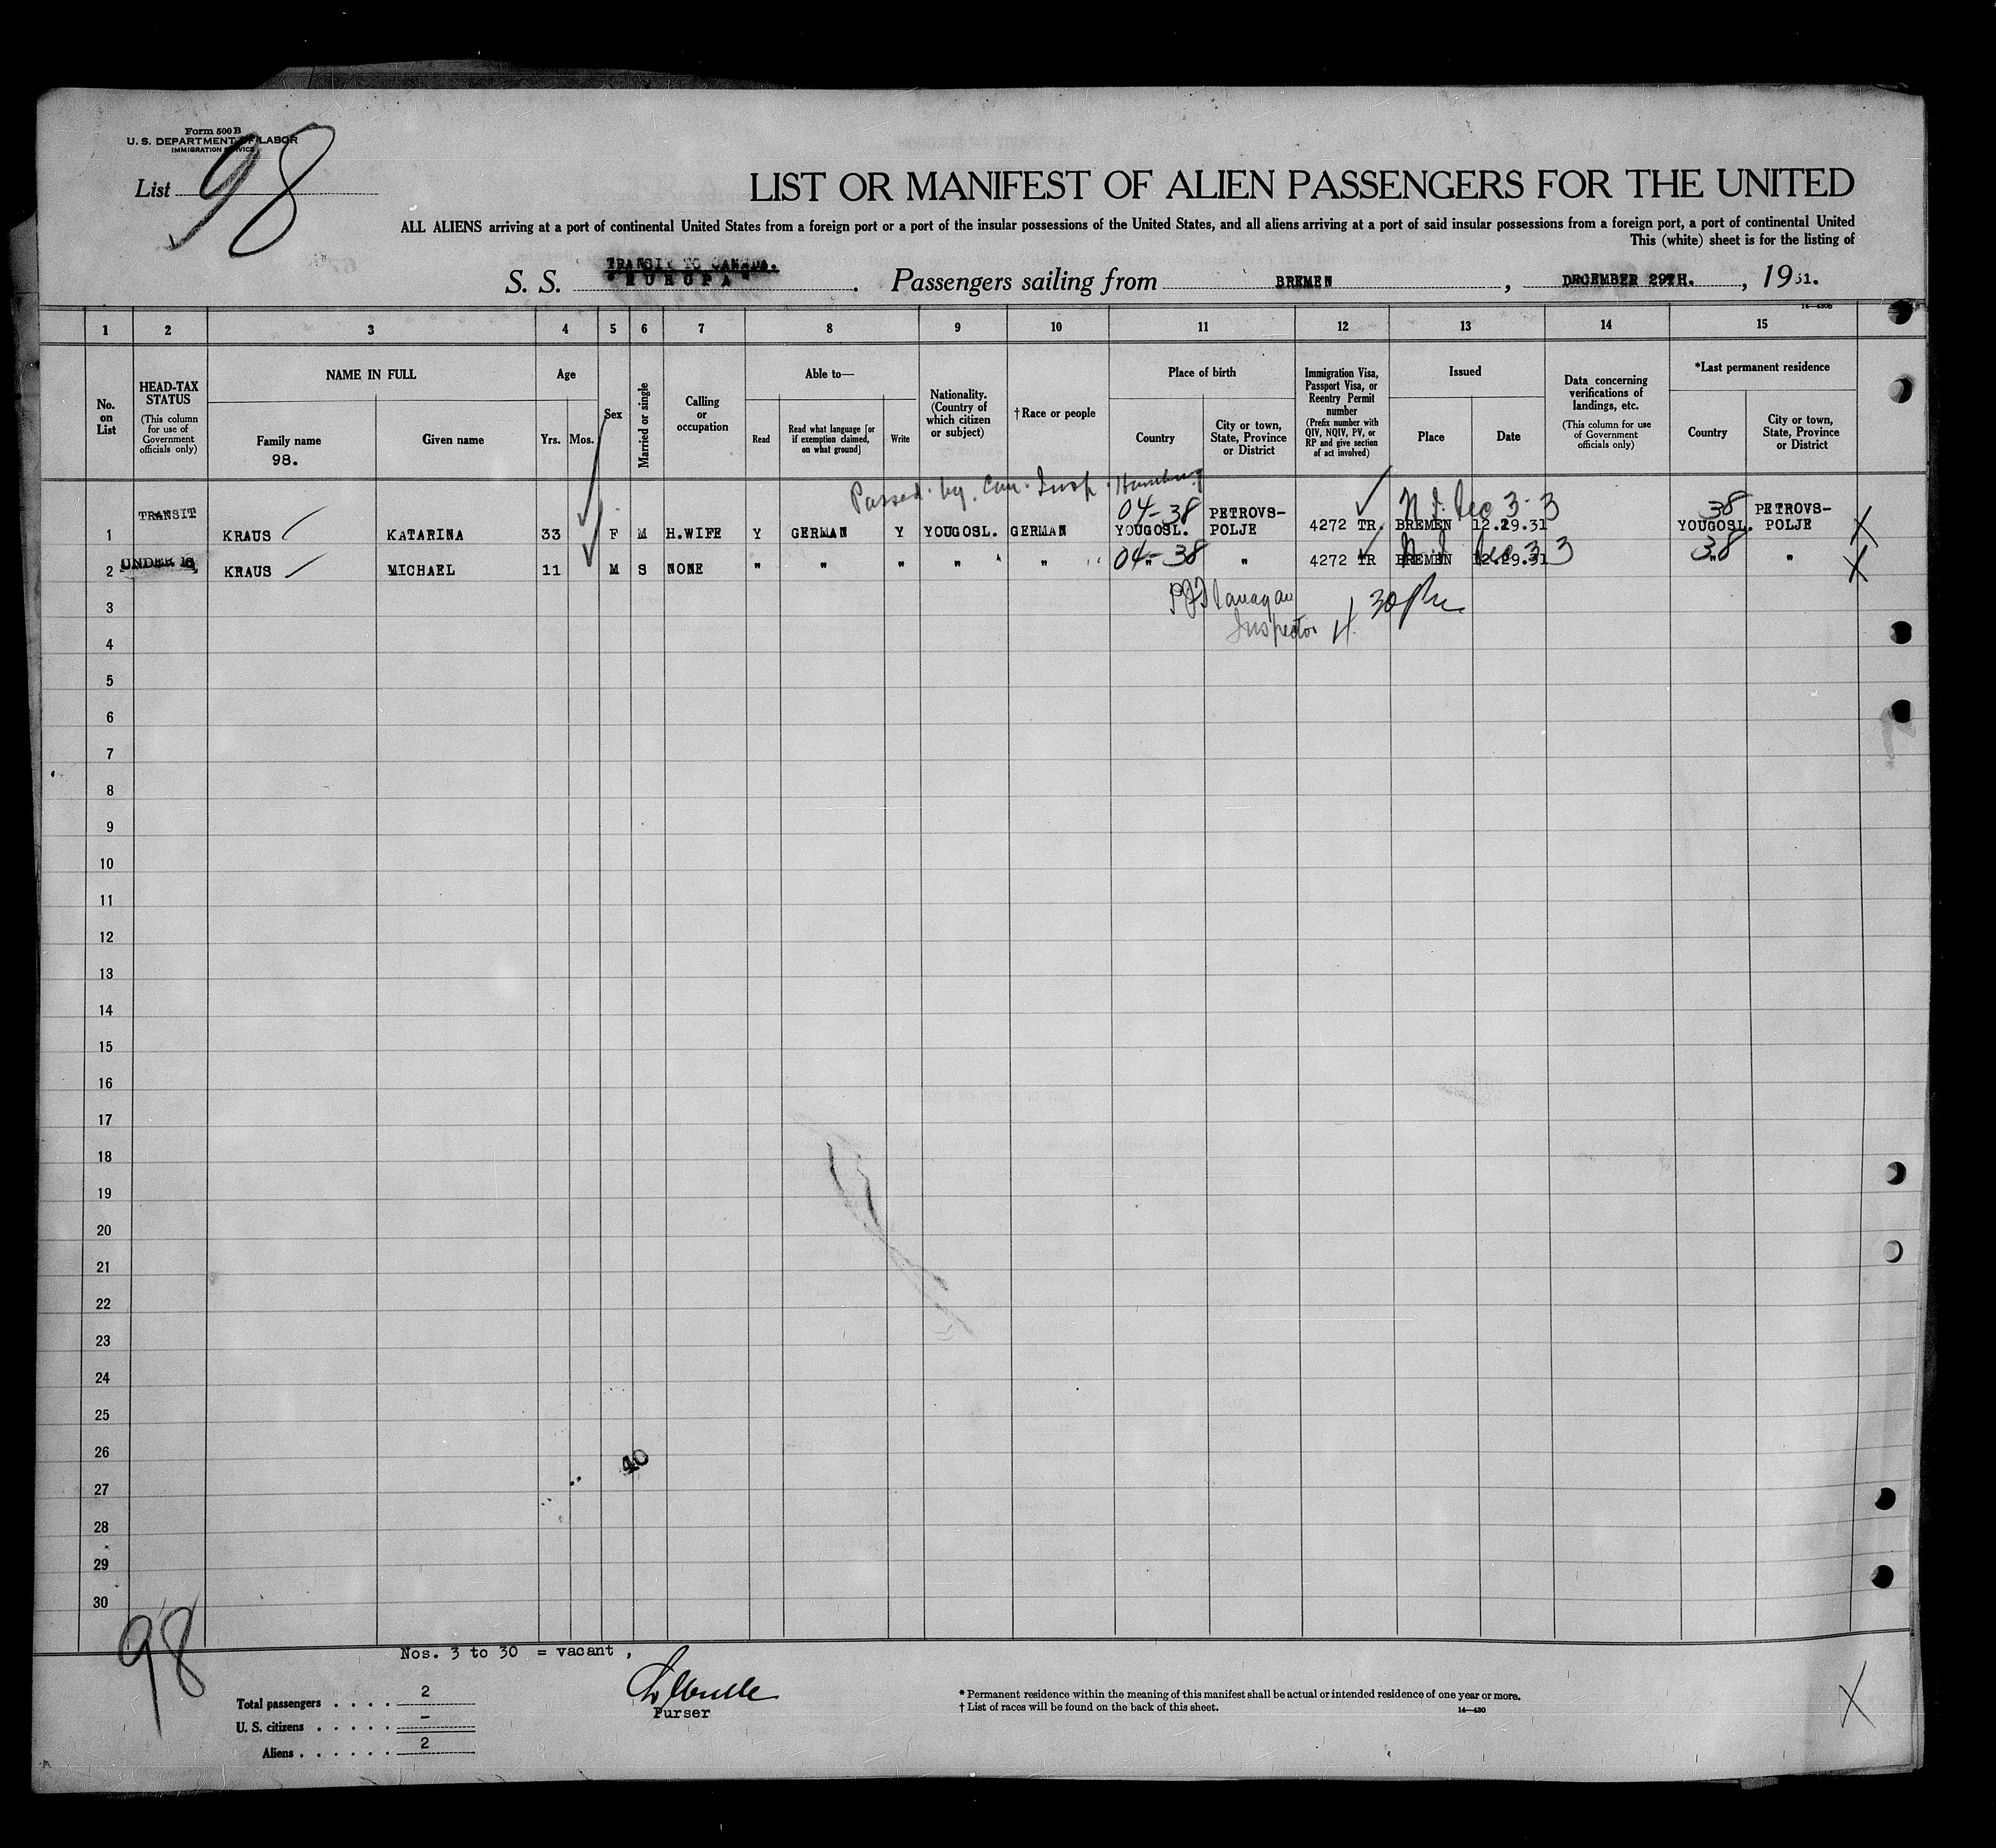 Form 500 B
U. S. DEPARTMENT OF LABOR
IMMIGRATION SERVICE
List 98
LIST OR MANIFEST OF ALIEN PASSENGERS FOR THE UNITED
ALL ALIENS arriving at a port of continental United States from a foreign port or a port of the insular possessions of the United States, and all aliens arriving at a port of said insular possessions from a foreign port, a port of continental United
This (white) sheet is for the listing of
TRANSIT TO CANADA.
S. S. "EUROPA". Passengers sailing from BREMEN, DECEMBER 29TH., 1931.
14—430B
1 2 3 4 5 6 7 8 9 10 11 12 13 14 15
No. on List
HEAD-TAX STATUS
(This column for use of Government officials only)
NAME IN FULL
Family name
98.
Given name
Age
Yrs. Mos.
Sex
Married or single
Calling or occupation
Able to—
Read
Read what language [or if exemption claimed, on what ground]
Write
Nationality. (Country of which citizen or subject)
† Race or people
Place of birth
Country
City or town, State, Province or District
Immigration Visa, Passport Visa, or Reentry Permit number
(Prefix number with QIV, NQIV, PV, or RP and give section of act involved)
Issued
Place
Date
Data concerning verifications of landings, etc.
(This column for use of Government officials only)
*Last permanent residence
Country
City or town, State, Province or District
Passed by Can. Insp. Hamburg
04-38 PETROVS- 38 PETROVS-
TRANSIT
1 KRAUS KATARINA 33 F M H.WIFE Y GERMAN Y YOUGOSL. GERMAN YOUGOSL. POLJE 4272 TR. BREMEN 12.29.31 YOUGOSL. POLJE X
04-38 38
2 UNDER 16, KRAUS MICHAEL 11 M S NONE " " " " " " " 4272 TR BREMEN 12.29.31 " " X
3
Inspector
4
5
6
7
8
9
10
11
12
13
14
15
16
17
18
19
20
21
22
23
24
25
26
40
27
28
29
30
98
Nos. 3 to 30 = vacant,
Total passengers . . . . 2
U. S. citizens . . . . . -
Aliens . . . . . . 2
Purser
* Permanent residence within the meaning of this manifest shall be actual or intended residence of one year or more.
† List of races will be found on the back of this sheet.
14—430
X